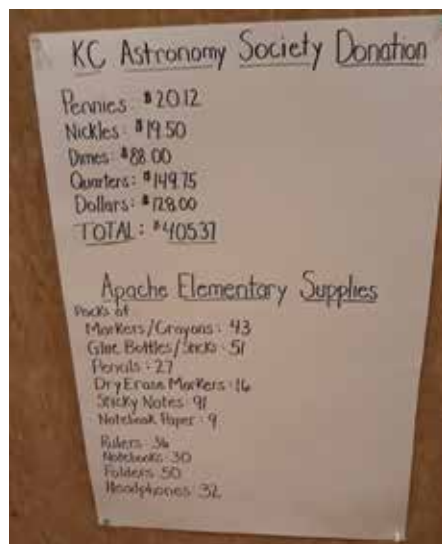 KC Astronomy Society Donation
Pennies: $20.12
Nickles: $19.50
Dimes: $88.00
Quarters: $149.75
Dollars: $128.00
TOTAL: $405.37
Apache Elementary Supplies
Packs of
Markers/Crayons: 43
Glue Bottles/Sticks: 51
Pencils: 27
Dry Erase Markers: 16
Sticky Notes: 91
Notebook Paper: 9
Rulers: 36
Notebooks: 30
Folders: 50
Headphones: 32